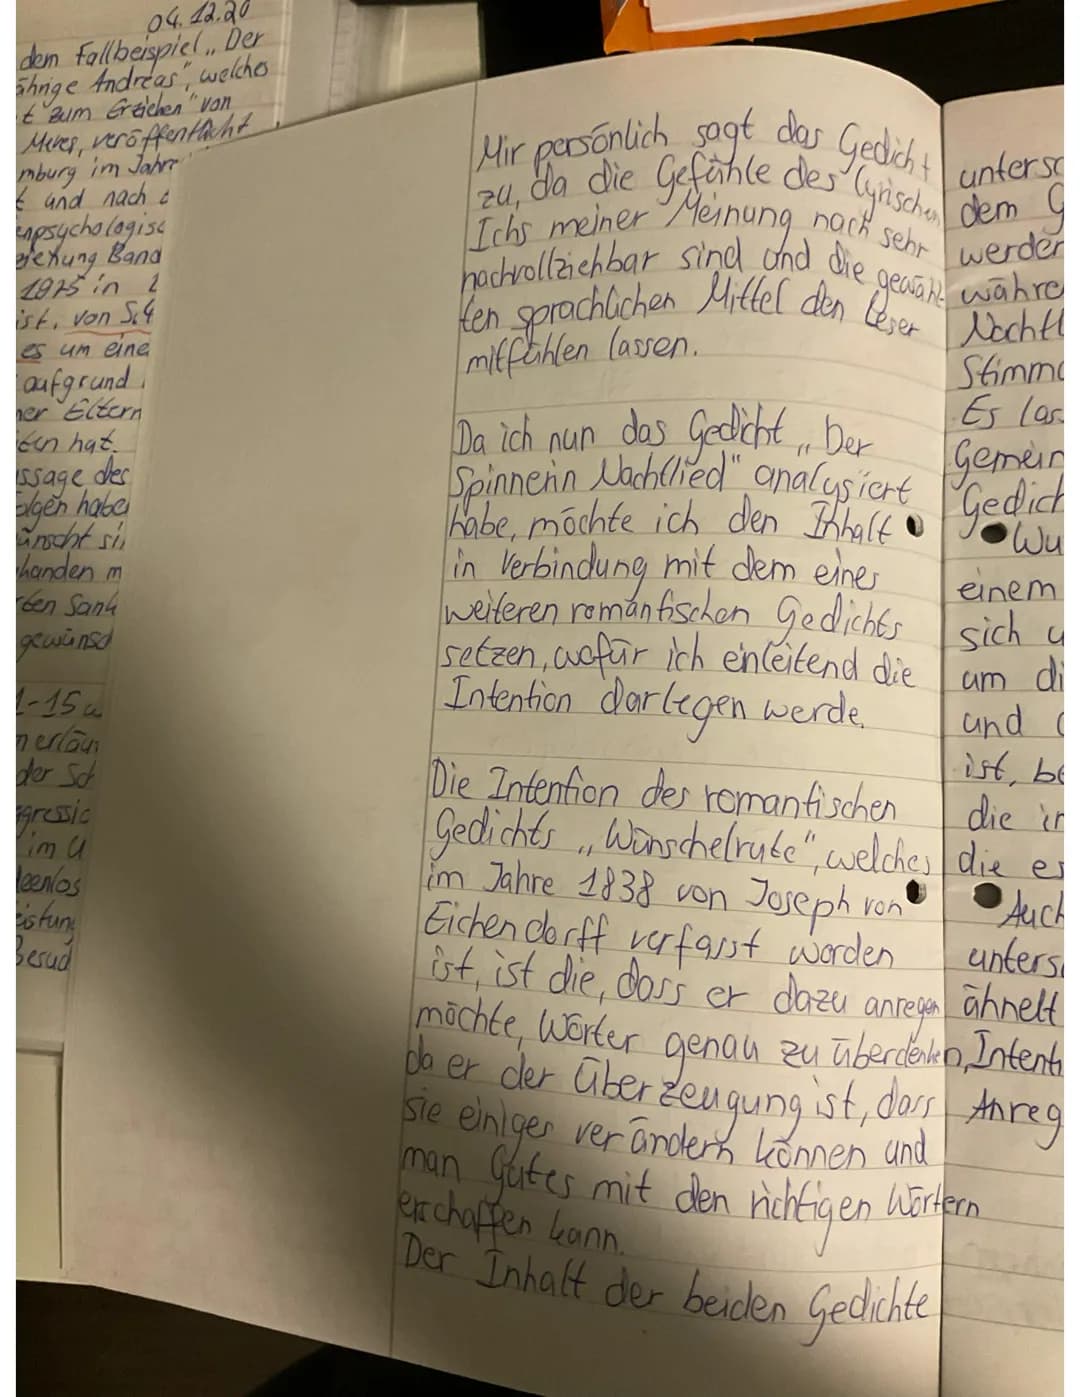 04.12.20
dem Fallbeispiel „Der
ährige Andreas", welches
t zum Erziehen" von
Meves, veröffentlicht
mburg im Jahre
t und nach
enpsychologisc
ziehung Band
1975 in
ist, von S.4
es um eine
aufgrund
ner Eltern
ten hat.
ssage des
olgen habe
ünscht si
handen m
rten Sank
gewünsc
1-15
n erläu
der Sc
ggressic
im U
deenlos
eistung
Besud
Mir persönlich sagt das Gedicht
zu, da die Gefühle des lyrischen
Ichs meiner Meinung nach sehr
nachvollziehbar sind und die gewähl-
ten sprachlichen Mittel den Leser
mitfühlen lassen.
Da ich nun das Gedicht „Der
Spinnerin Nachtlied" analysiert
habe, möchte ich den Inhalt
in Verbindung mit dem eines
weiteren romantischen Gedichts
setzen, wofür ich einleitend die
Intention darlegen werde.
Die Intention des romantischen
Gedichts „Wünschelrute", welches
im Jahre 1838 von Joseph von
Eichendorff verfasst worden
ist, ist die, dass er dazu anregen
möchte, Wörter genau zu überdenken,
da er der Überzeugung ist, dass
sie einiges verändern können und
man Gutes mit den richtigen Wörtern
erschaffen kann.
Der Inhalt der beiden Gedichte
untersc
dem G
werden
währe
Nachtl
Stimmo
Es las
Gemein
Gedich
Wü
einem
sich u
um di
und
ist, be
die in
die es
Auch
unters
ähnelt
Intenti
Anreg